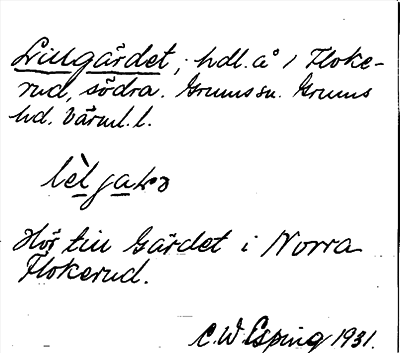 Lillgärdet, hdl. å 1 Floke-
rud, södra. Grums sn. Grums
hd. Värml. l.
Hör till Gärdet i Norra
Flokerud.
C. W. Esping 1931.